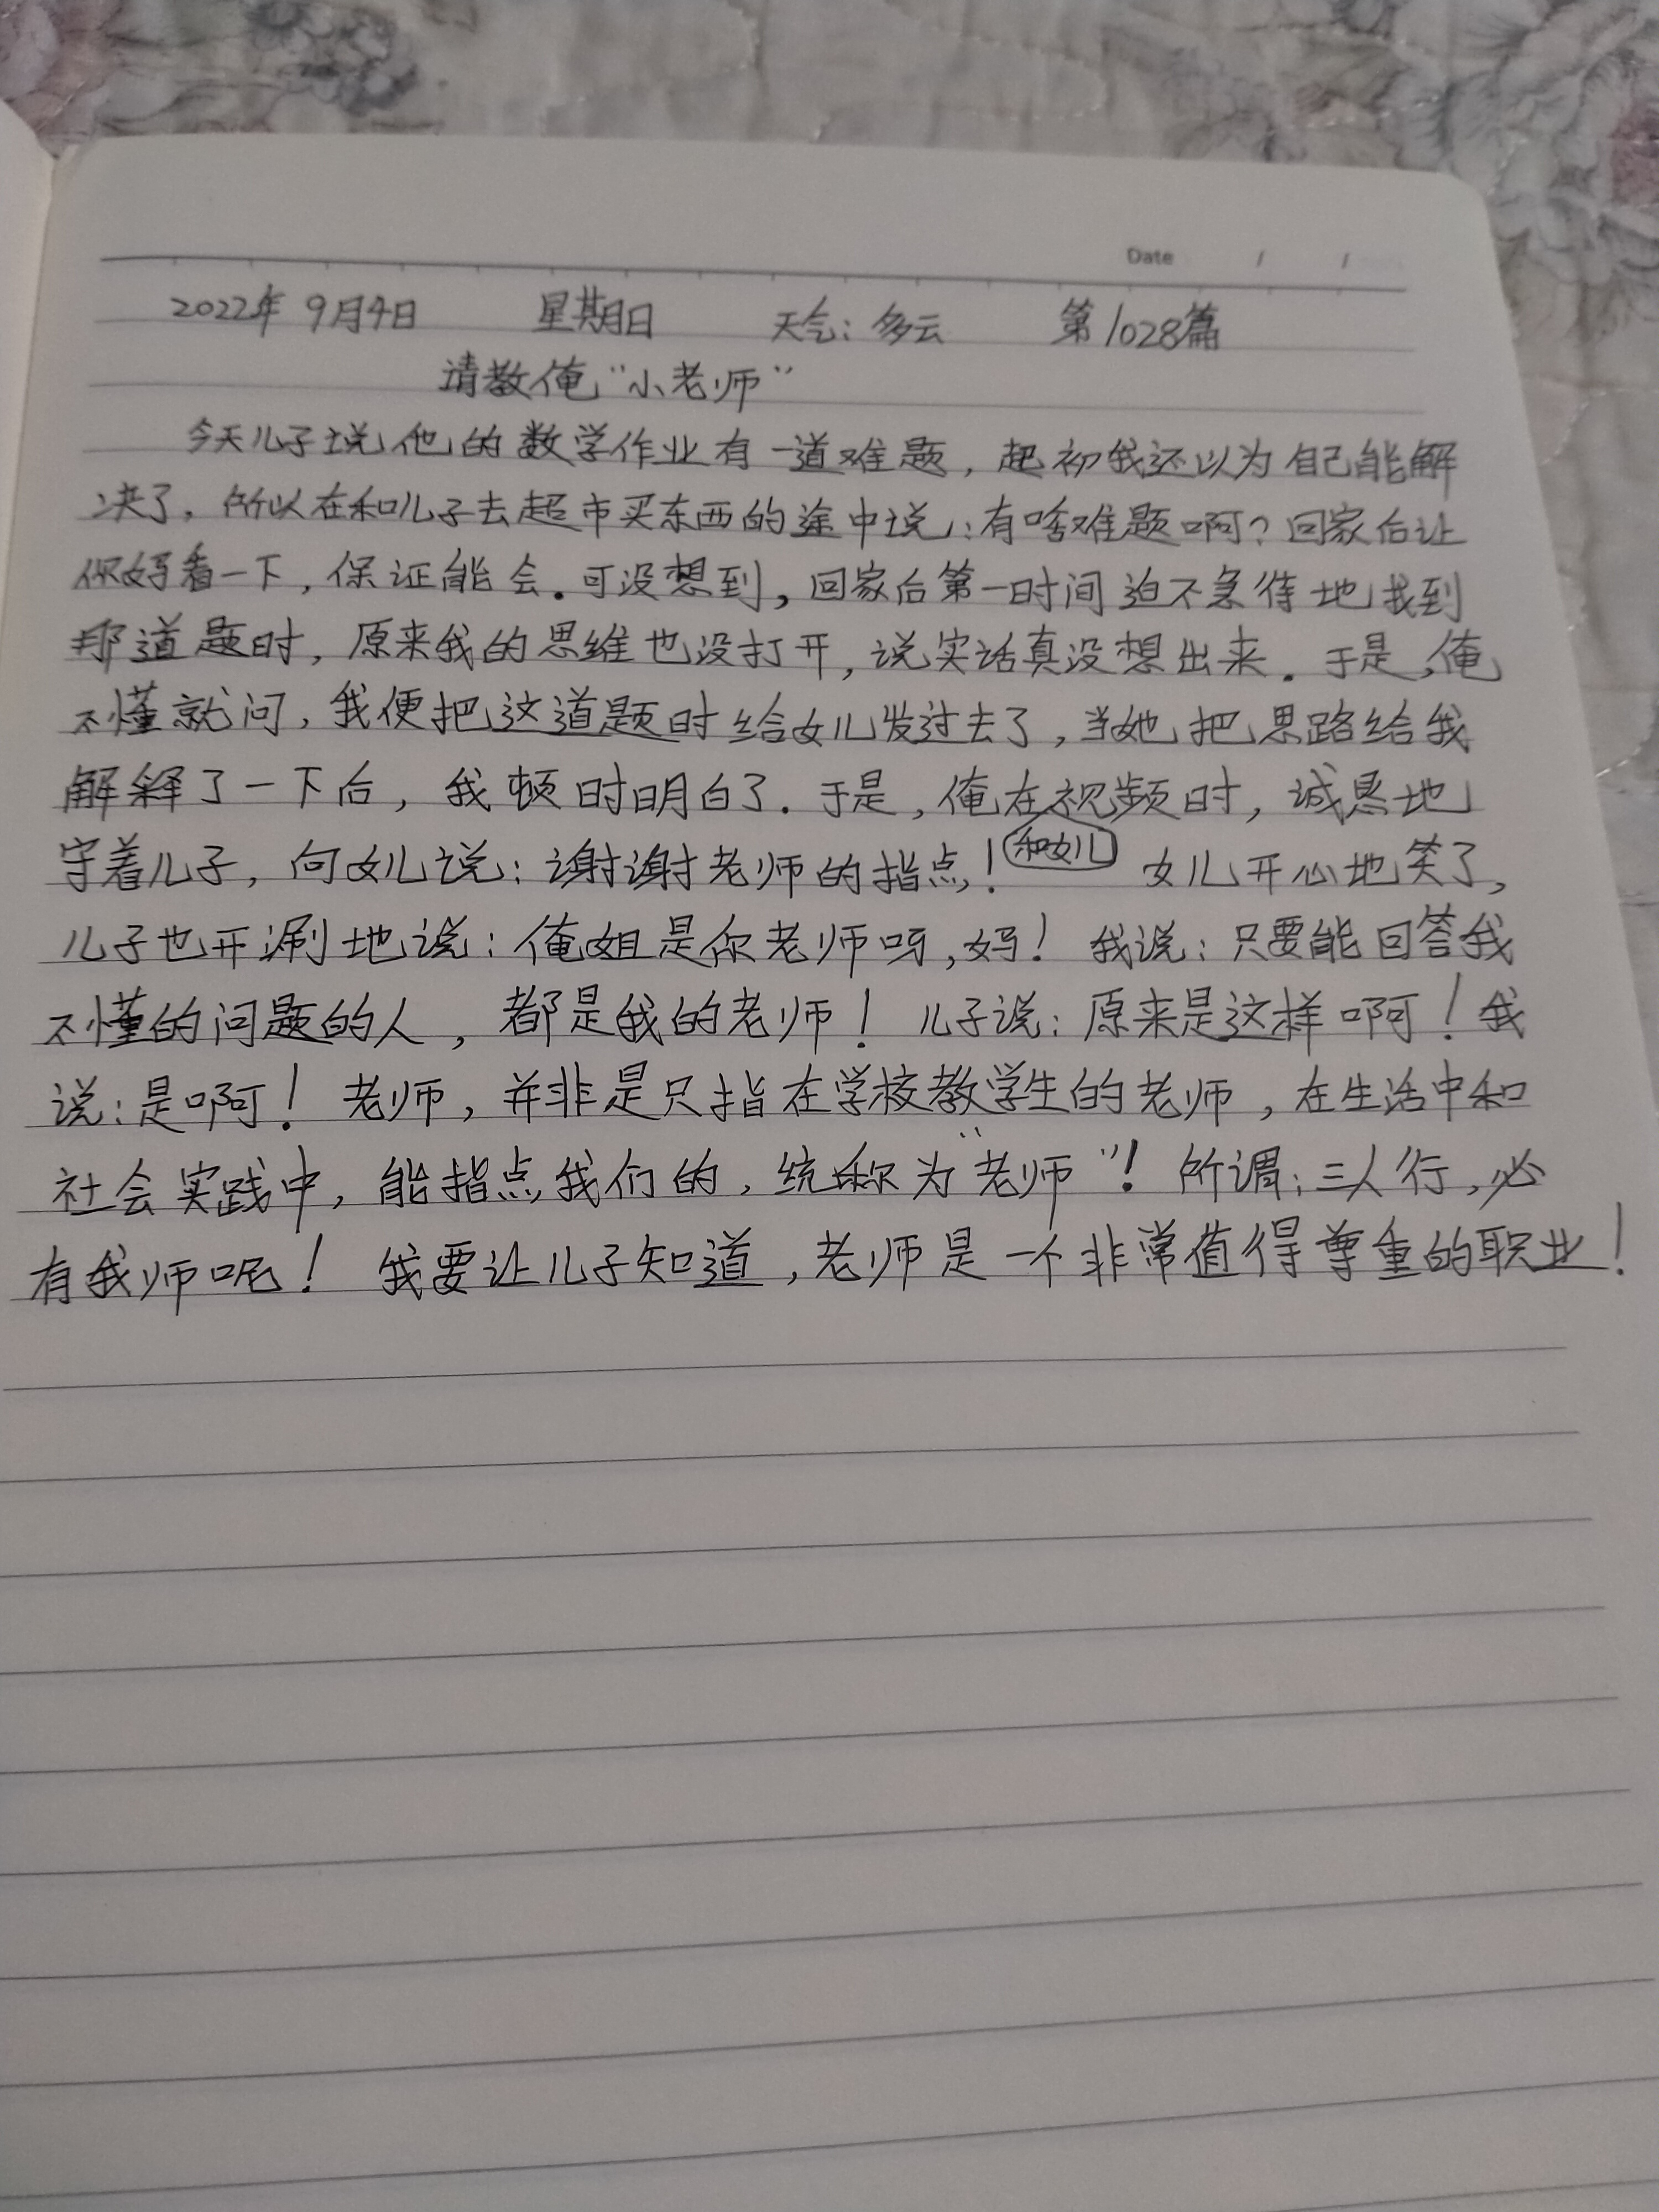 Date / /
2022年 9月4日 星期日 天气：多云 第1028篇
请教俺“小老师”
今天儿子说他的数学作业有一道难题，起初我还以为自己能解
决了，所以在和儿子去超市买东西的途中说：有啥难题啊？回家后让
你妈看一下，保证能会。可没想到，回家后第一时间迫不急待地找到
那道题时，原来我的思维也没打开，说实话真没想出来。于是，俺
不懂就问，我便把这道题时给女儿发过去了，当她把思路给我
解释了一下后，我顿时明白了。于是，俺在视频时，诚恳地
守着儿子，向女儿说：谢谢老师的指点！女儿开心地笑了，
和女儿
儿子也开涮地说：俺姐是你老师呀，妈！我说：只要能回答我
不懂的问题的人，都是我的老师！儿子说：原来是这样啊！我
说：是啊！老师，并非是只指在学校教学生的老师，在生活中和
社会实践中，能指点我们的，统称为“老师”！所谓：三人行，必
有我师呢！我要让儿子知道，老师是一个非常值得尊重的职业！